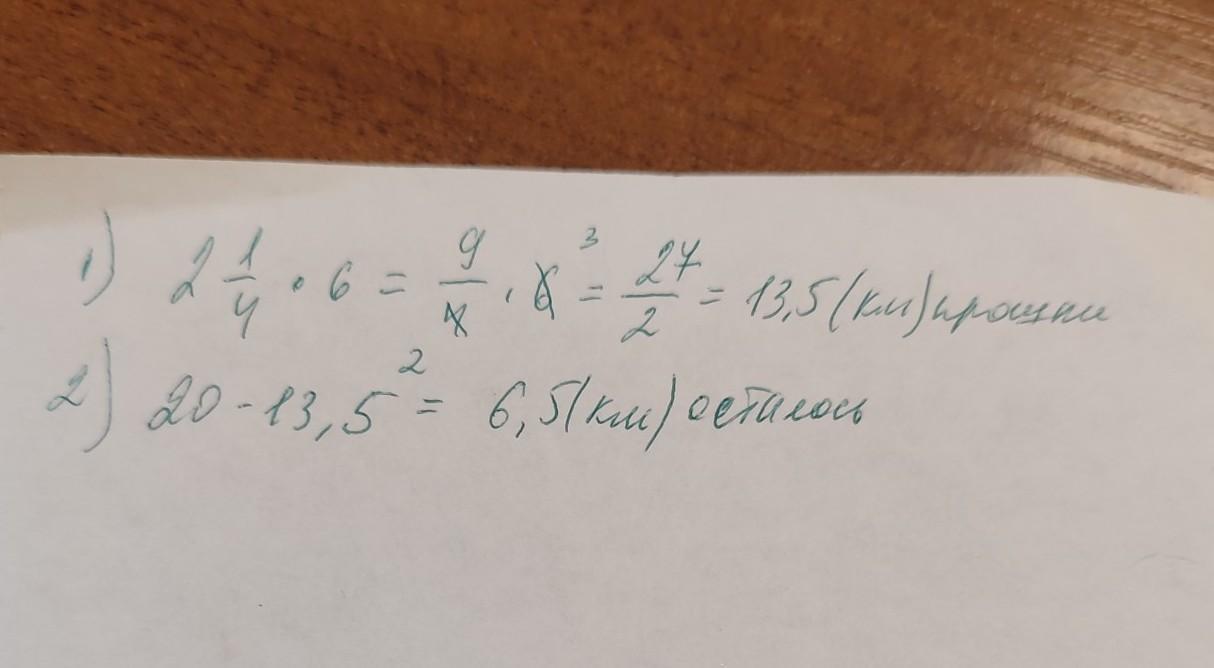 1) 2 1/4 · 6 = 9/4 · 6 3 = 27/2 = 13,5 (км) прошли
2) 20 - 13,5 2 = 6,5 (км) осталось